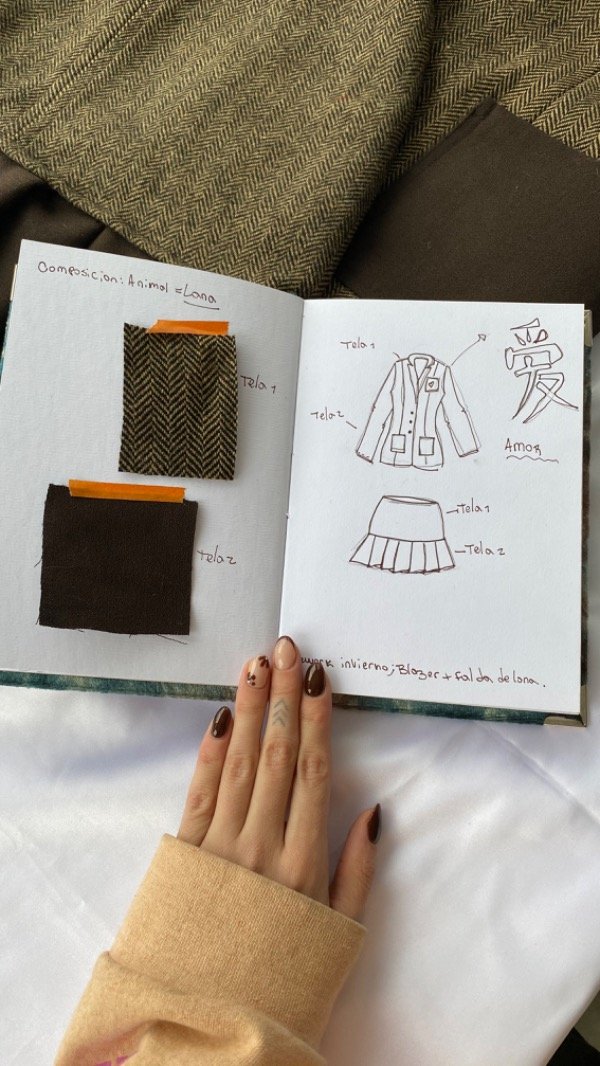 Composicion: Animal = Lana
Tela 1
Tela 2
Tela 1
Tela 2
爱
Amor
Tela 1
Tela 2
invierno; Blazer + falda de lana.